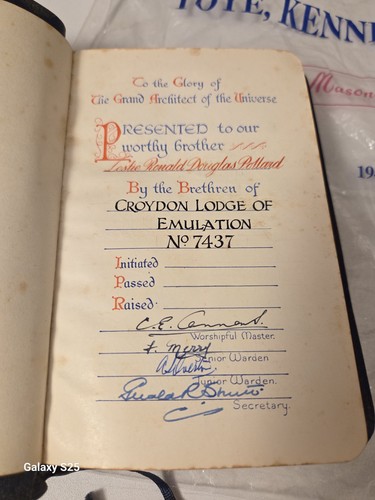 TOTE, KENN
Mason
19
To the Glory of
The Grand Architect of the Universe
PRESENTED to our
worthy brother
Leslie Ronald Douglas Pollard
By the Brethren of
CROYDON LODGE OF
EMULATION
No 7437
Initiated
Passed
Raised
C.E.
Worshipful Master.
F. Merry
Senior Warden
Junior Warden.
Secretary.
Galaxy S25